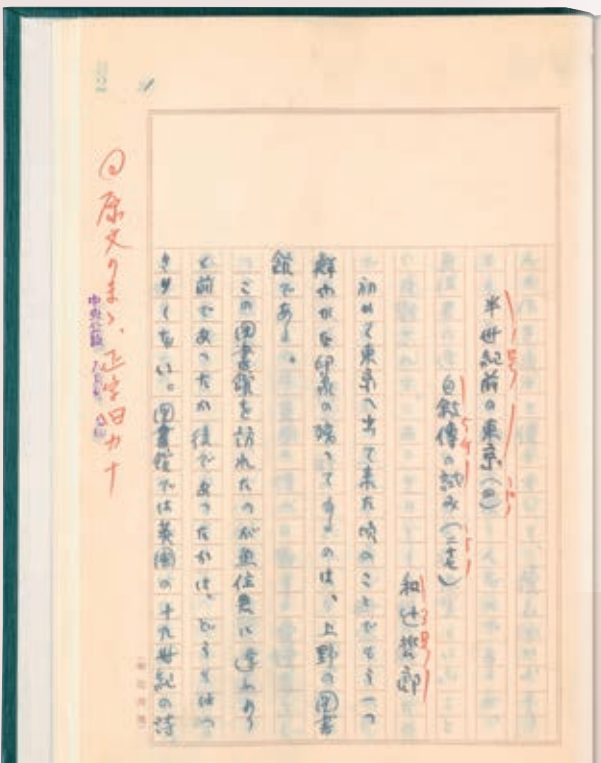 半世紀前の東京(四)
自敍傳の試み(二十七)
和辻哲郎
初めて東京へ出て来た頃のことでもう一つ
鮮やかな印象の残ってゐるのは、上野の図書
館である。
この図書館を訪れたのが魚住君に案内
前であったか後であったかは、どうもはっ
きりしない。図書館では英国の十九世紀の詩
原文のまゝ、正字旧カナ
中央公論